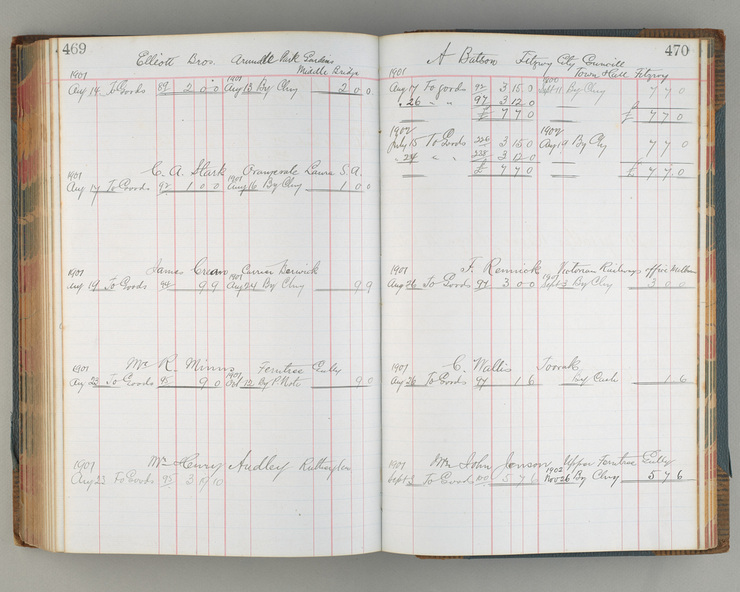 469
Elliott Bros. Arundle Park Gardens
Middle Bridge
1901 1901
Aug 14 To Goods 89 2 0 0 Aug 13 By Chq 2 0 0
C. A. Stark Orangevale Laura S.A.
1901 1901
Aug 17 To Goods 92 1 0 0 Aug 16 By Chq 1 0 0
James Currier Berwick
1901 1901
Aug 19 To Goods 9 9 Aug 24 By Chq 9 9
Mr R. Minns Ferntree Gully
1901 1901
Aug 23 To Goods 95 9 0 Oct 12 By P. Note 9 0
Mr Henry Audley Ruthington
1901
Aug 23 To Goods 95 3 19 10
470
A Batson Fitzroy City Councill
Town Hall Fitzroy
1901 1901
Aug 17 To goods 92 3 15 0 Sept 11 By Chq 7 7 0
" 26 " " 97 3 12 0
£ 7 7 0 £ 7 7 0
1902 1902
July 15 To Goods 226 3 15 0 Aug 19 By Chq 7 7 0
" 24 " " 228 3 12 0
£ 7 7 0 £ 7 7 0
F. Rennick Victorian Railways Office Melbourne
1901 1901
Aug 26 To Goods 97 3 0 0 Sept 3 By Chq 3 0 0
C. Wallis Toorak
1901
Aug 26 To Goods 97 1 6 By Cash 1 6
Mr John Jonson Upper Ferntree Gully
1901 1902
Sept 3 To Goods 100 5 7 6 Nov 26 By Chq 5 7 6